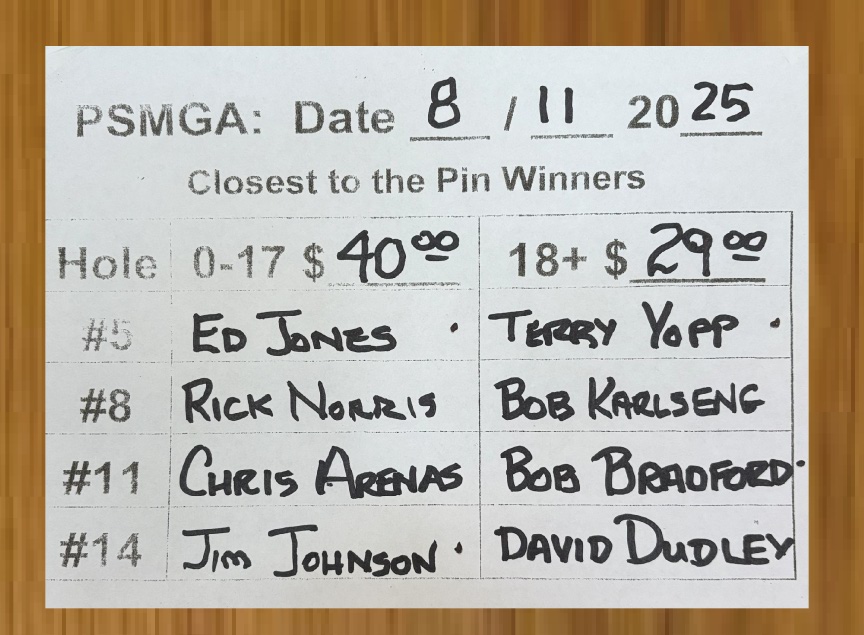 PSMGA: Date 8 / 11 2025
Closest to the Pin Winners
Hole 0-17 $ 40.00 18+ $ 29.00
#5 ED JONES TERRY YOPP
#8 RICK NORRIS BOB KARLSENG
#11 CHRIS ARENAS BOB BRADFORD
#14 JIM JOHNSON DAVID DUDLEY